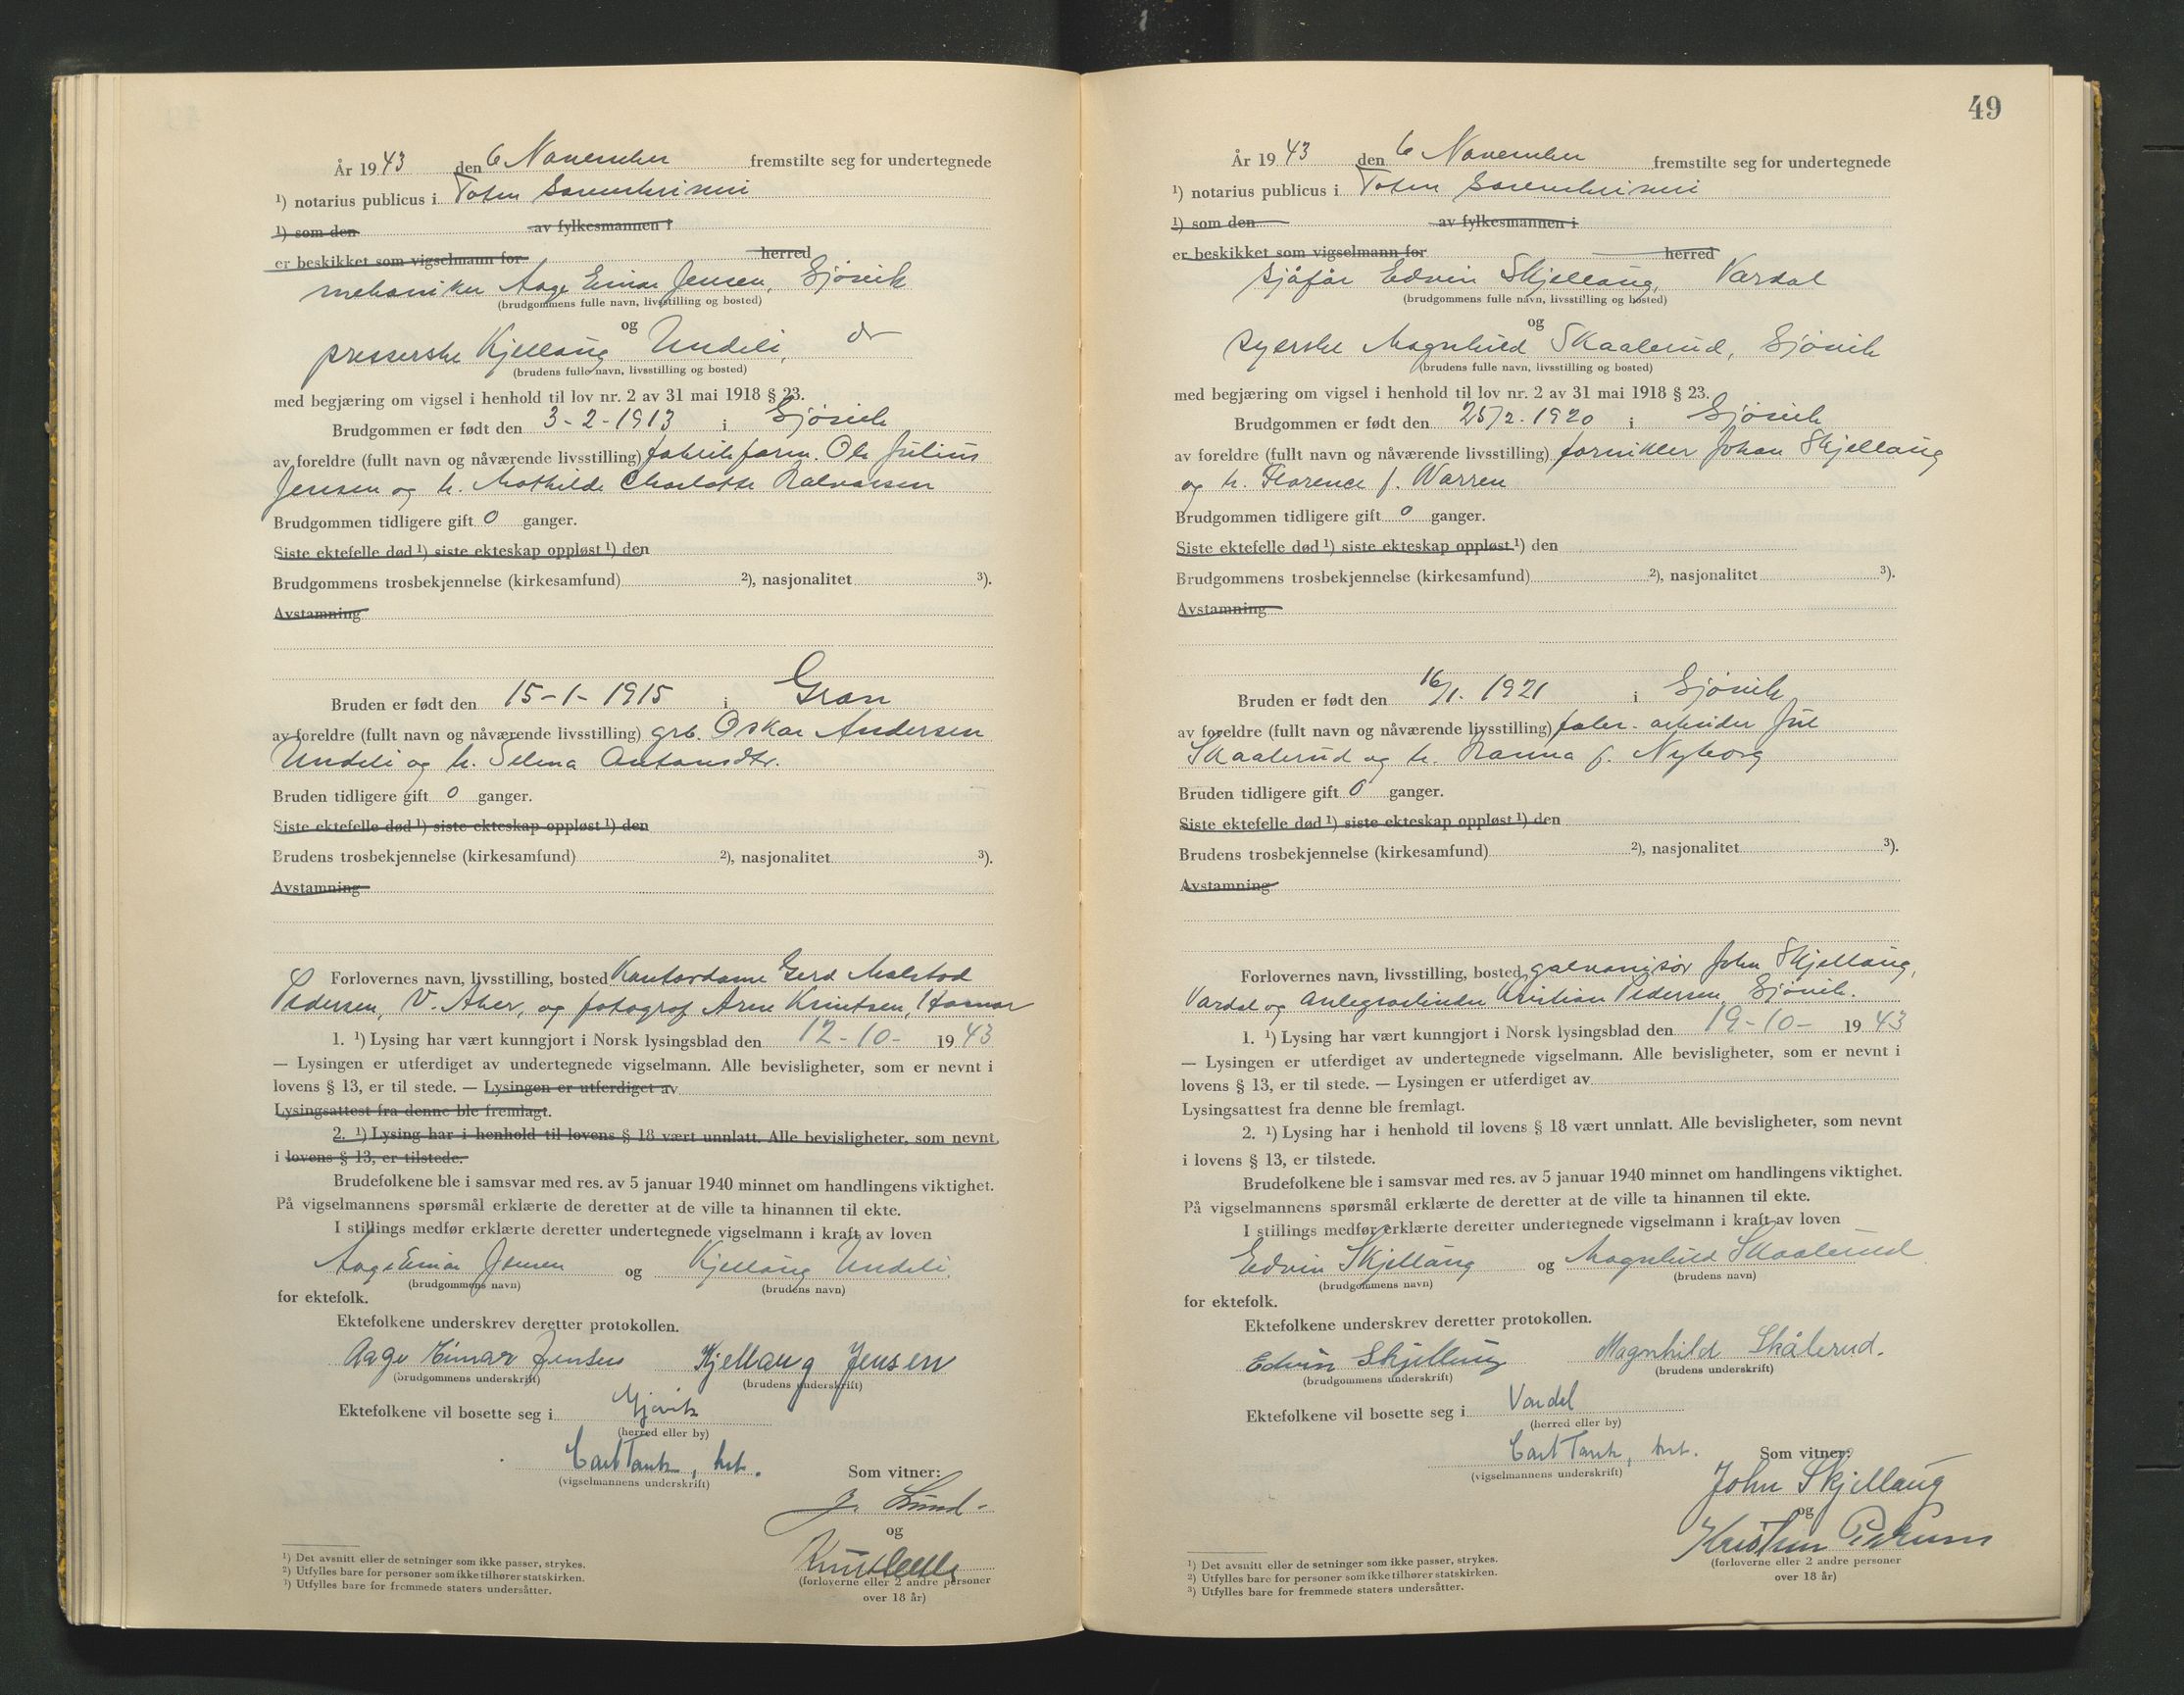 År 1943 den 6 November fremstilte seg for undertegnede
¹) notarius publicus i Toten Sorenskriveri
¹) som den av fylkesmannen i
er beskikket som vigselmann for herred
mekaniker Aage Einar Jensen, Gjövik
(brudgommens fulle navn, livsstilling og bosted)
og
presserske Kjellaug Undeli, dr
(brudens fulle navn, livsstilling og bosted)
med begjæring om vigsel i henhold til lov nr. 2 av 31 mai 1918 § 23.
Brudgommen er født den 3-2-1913 i Gjövik
av foreldre (fullt navn og nåværende livsstilling) fabrikform. Ole Julius
Jensen og h. Mathilde Charlotte Halvorsen
Brudgommen tidligere gift 0 ganger.
Siste ektefelle død ¹) siste ekteskap oppløst ¹) den
Brudgommens trosbekjennelse (kirkesamfund) ²), nasjonalitet ³).
Avstamning
Bruden er født den 15-1-1915 i Gran
av foreldre (fullt navn og nåværende livsstilling) grb. Oskar Andersen
Undeli og h. Selma Antonsdtr.
Bruden tidligere gift 0 ganger.
Siste ektefelle død ¹) siste ekteskap oppløst ¹) den
Brudens trosbekjennelse (kirkesamfund) ²), nasjonalitet ³).
Avstamning
Forlovernes navn, livsstilling, bosted Kontordame Gerd Malstod
Pedersen, V. Aker, og fotograf Arne Knutsen, Hamar
1. ¹) Lysing har vært kunngjort i Norsk lysingsblad den 12-10- 1943
— Lysingen er utferdiget av undertegnede vigselmann. Alle bevisligheter, som er nevnt i
lovens § 13, er til stede. — Lysingen er utferdiget av
Lysingsattest fra denne ble fremlagt.
2. ¹) Lysing har i henhold til lovens § 18 vært unnlatt. Alle bevisligheter, som nevnt
i lovens § 13, er tilstede.
Brudefolkene ble i samsvar med res. av 5 januar 1940 minnet om handlingens viktighet.
På vigselmannens spørsmål erklærte de deretter at de ville ta hinannen til ekte.
I stillings medfør erklærte deretter undertegnede vigselmann i kraft av loven
Aage Einar Jensen og Kjellaug Undeli
(brudgommens navn) (brudens navn)
for ektefolk.
Ektefolkene underskrev deretter protokollen.
Aage Einar Jensen Kjellaug Jensen
(brudgommens underskrift) (brudens underskrift)
Ektefolkene vil bosette seg i Gjøvik
(herred eller by)
Carl Tank, kst.
(vigselmannens underskrift)
Som vitner:
J. Lund
og
(forloverne eller 2 andre personer
over 18 år)
¹) Det avsnitt eller de setninger som ikke passer, strykes.
²) Utfylles bare for personer som ikke tilhører statskirken.
³) Utfylles bare for fremmede staters undersåtter.
49
År 1943 den 6 November fremstilte seg for undertegnede
¹) notarius publicus i Toten Sorenskriveri
¹) som den av fylkesmannen i
er beskikket som vigselmann for herred
sjåför Edvin Skjellaug, Vardal
(brudgommens fulle navn, livsstilling og bosted)
og
syerske Magnhild Skaalerud, Gjövik
(brudens fulle navn, livsstilling og bosted)
med begjæring om vigsel i henhold til lov nr. 2 av 31 mai 1918 § 23.
Brudgommen er født den 25/2. 1920 i Gjövik
av foreldre (fullt navn og nåværende livsstilling) fornikler Johan Skjellaug
og h. Florence f. Warren
Brudgommen tidligere gift 0 ganger.
Siste ektefelle død ¹) siste ekteskap oppløst ¹) den
Brudgommens trosbekjennelse (kirkesamfund) ²), nasjonalitet ³).
Avstamning
Bruden er født den 16/1. 1921 i Gjövik
av foreldre (fullt navn og nåværende livsstilling) fabr. arbeider Jul
Skaalerud og h. Hanna f. Nyborg
Bruden tidligere gift 0 ganger.
Siste ektefelle død ¹) siste ekteskap oppløst ¹) den
Brudens trosbekjennelse (kirkesamfund) ²), nasjonalitet ³).
Avstamning
Forlovernes navn, livsstilling, bosted galvanisör John Skjellaug,
Vardal og anlegsarbeider Kristian Pedersen, Gjövik.
1. ¹) Lysing har vært kunngjort i Norsk lysingsblad den 19-10- 1943
— Lysingen er utferdiget av undertegnede vigselmann. Alle bevisligheter, som er nevnt i
lovens § 13, er til stede. — Lysingen er utferdiget av
Lysingsattest fra denne ble fremlagt.
2. ¹) Lysing har i henhold til lovens § 18 vært unnlatt. Alle bevisligheter, som nevnt
i lovens § 13, er tilstede.
Brudefolkene ble i samsvar med res. av 5 januar 1940 minnet om handlingens viktighet.
På vigselmannens spørsmål erklærte de deretter at de ville ta hinannen til ekte.
I stillings medfør erklærte deretter undertegnede vigselmann i kraft av loven
Edvin Skjellaug og Magnhild Skaalerud
(brudgommens navn) (brudens navn)
for ektefolk.
Ektefolkene underskrev deretter protokollen.
Edvin Skjellaug Magnhild Skålerud.
(brudgommens underskrift) (brudens underskrift)
Ektefolkene vil bosette seg i Vardal
(herred eller by)
Carl Tank, kst.
(vigselmannens underskrift)
Som vitner:
John Skjellaug
og
Kristian Pedersen
(forloverne eller 2 andre personer
over 18 år)
¹) Det avsnitt eller de setninger som ikke passer, strykes.
²) Utfylles bare for personer som ikke tilhører statskirken.
³) Utfylles bare for fremmede staters undersåtter.